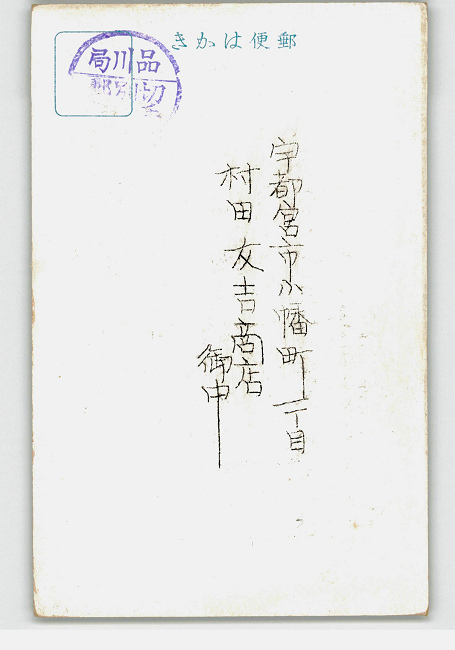 郵便はかき
品川局
宇都宮市小幡町一丁目
村田友吉商店
御中